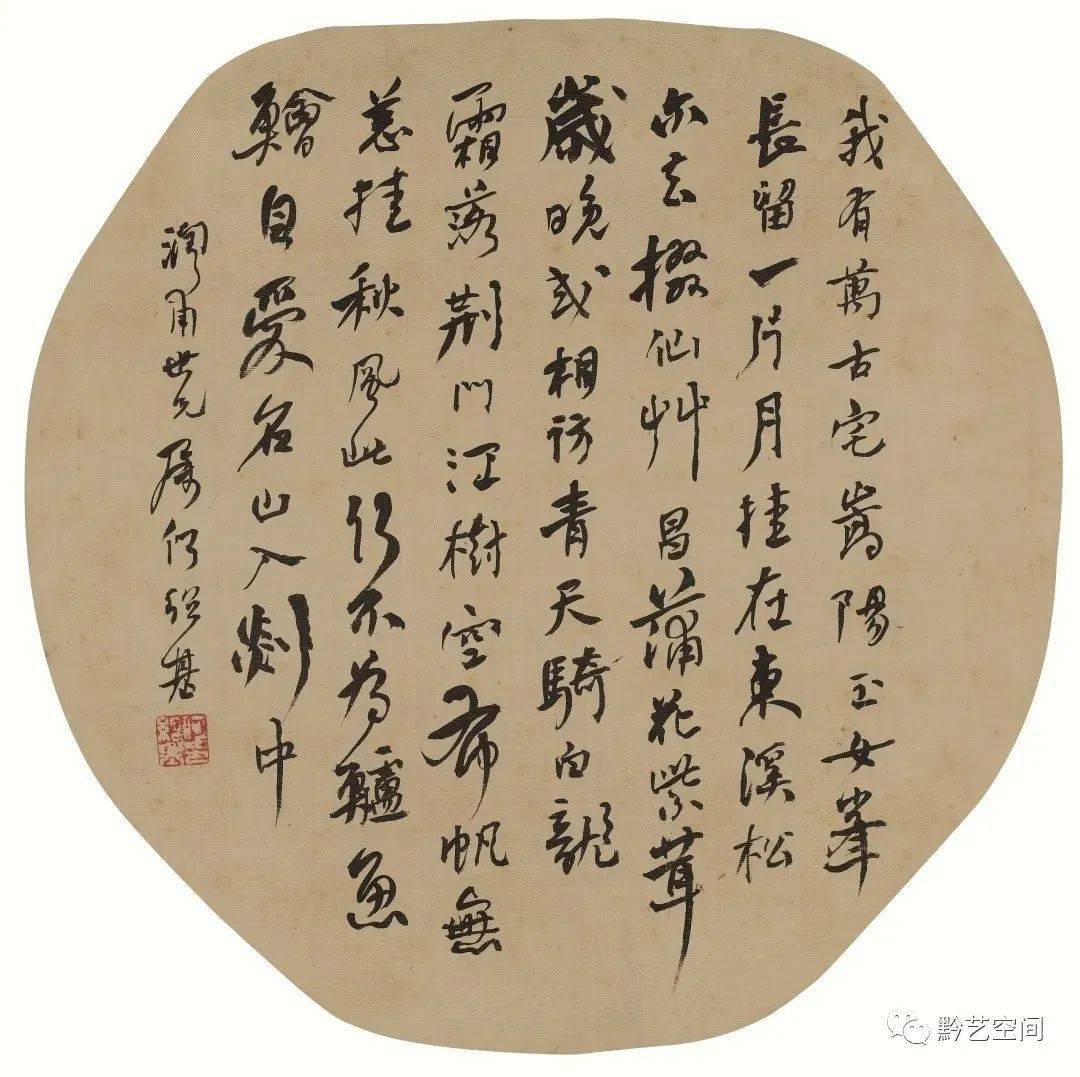 我有萬古宅嵩陽玉女峯
長留一片月挂在東溪松
尔去掇仙艸昌蒲花紫茸
歲晚或相訪青天騎白龍
霜落荆門江樹空布帆無
恙挂秋風此行不為鱸魚
鱠自愛名山入剡中
潤甫世兄屬何紹基
黔艺空间